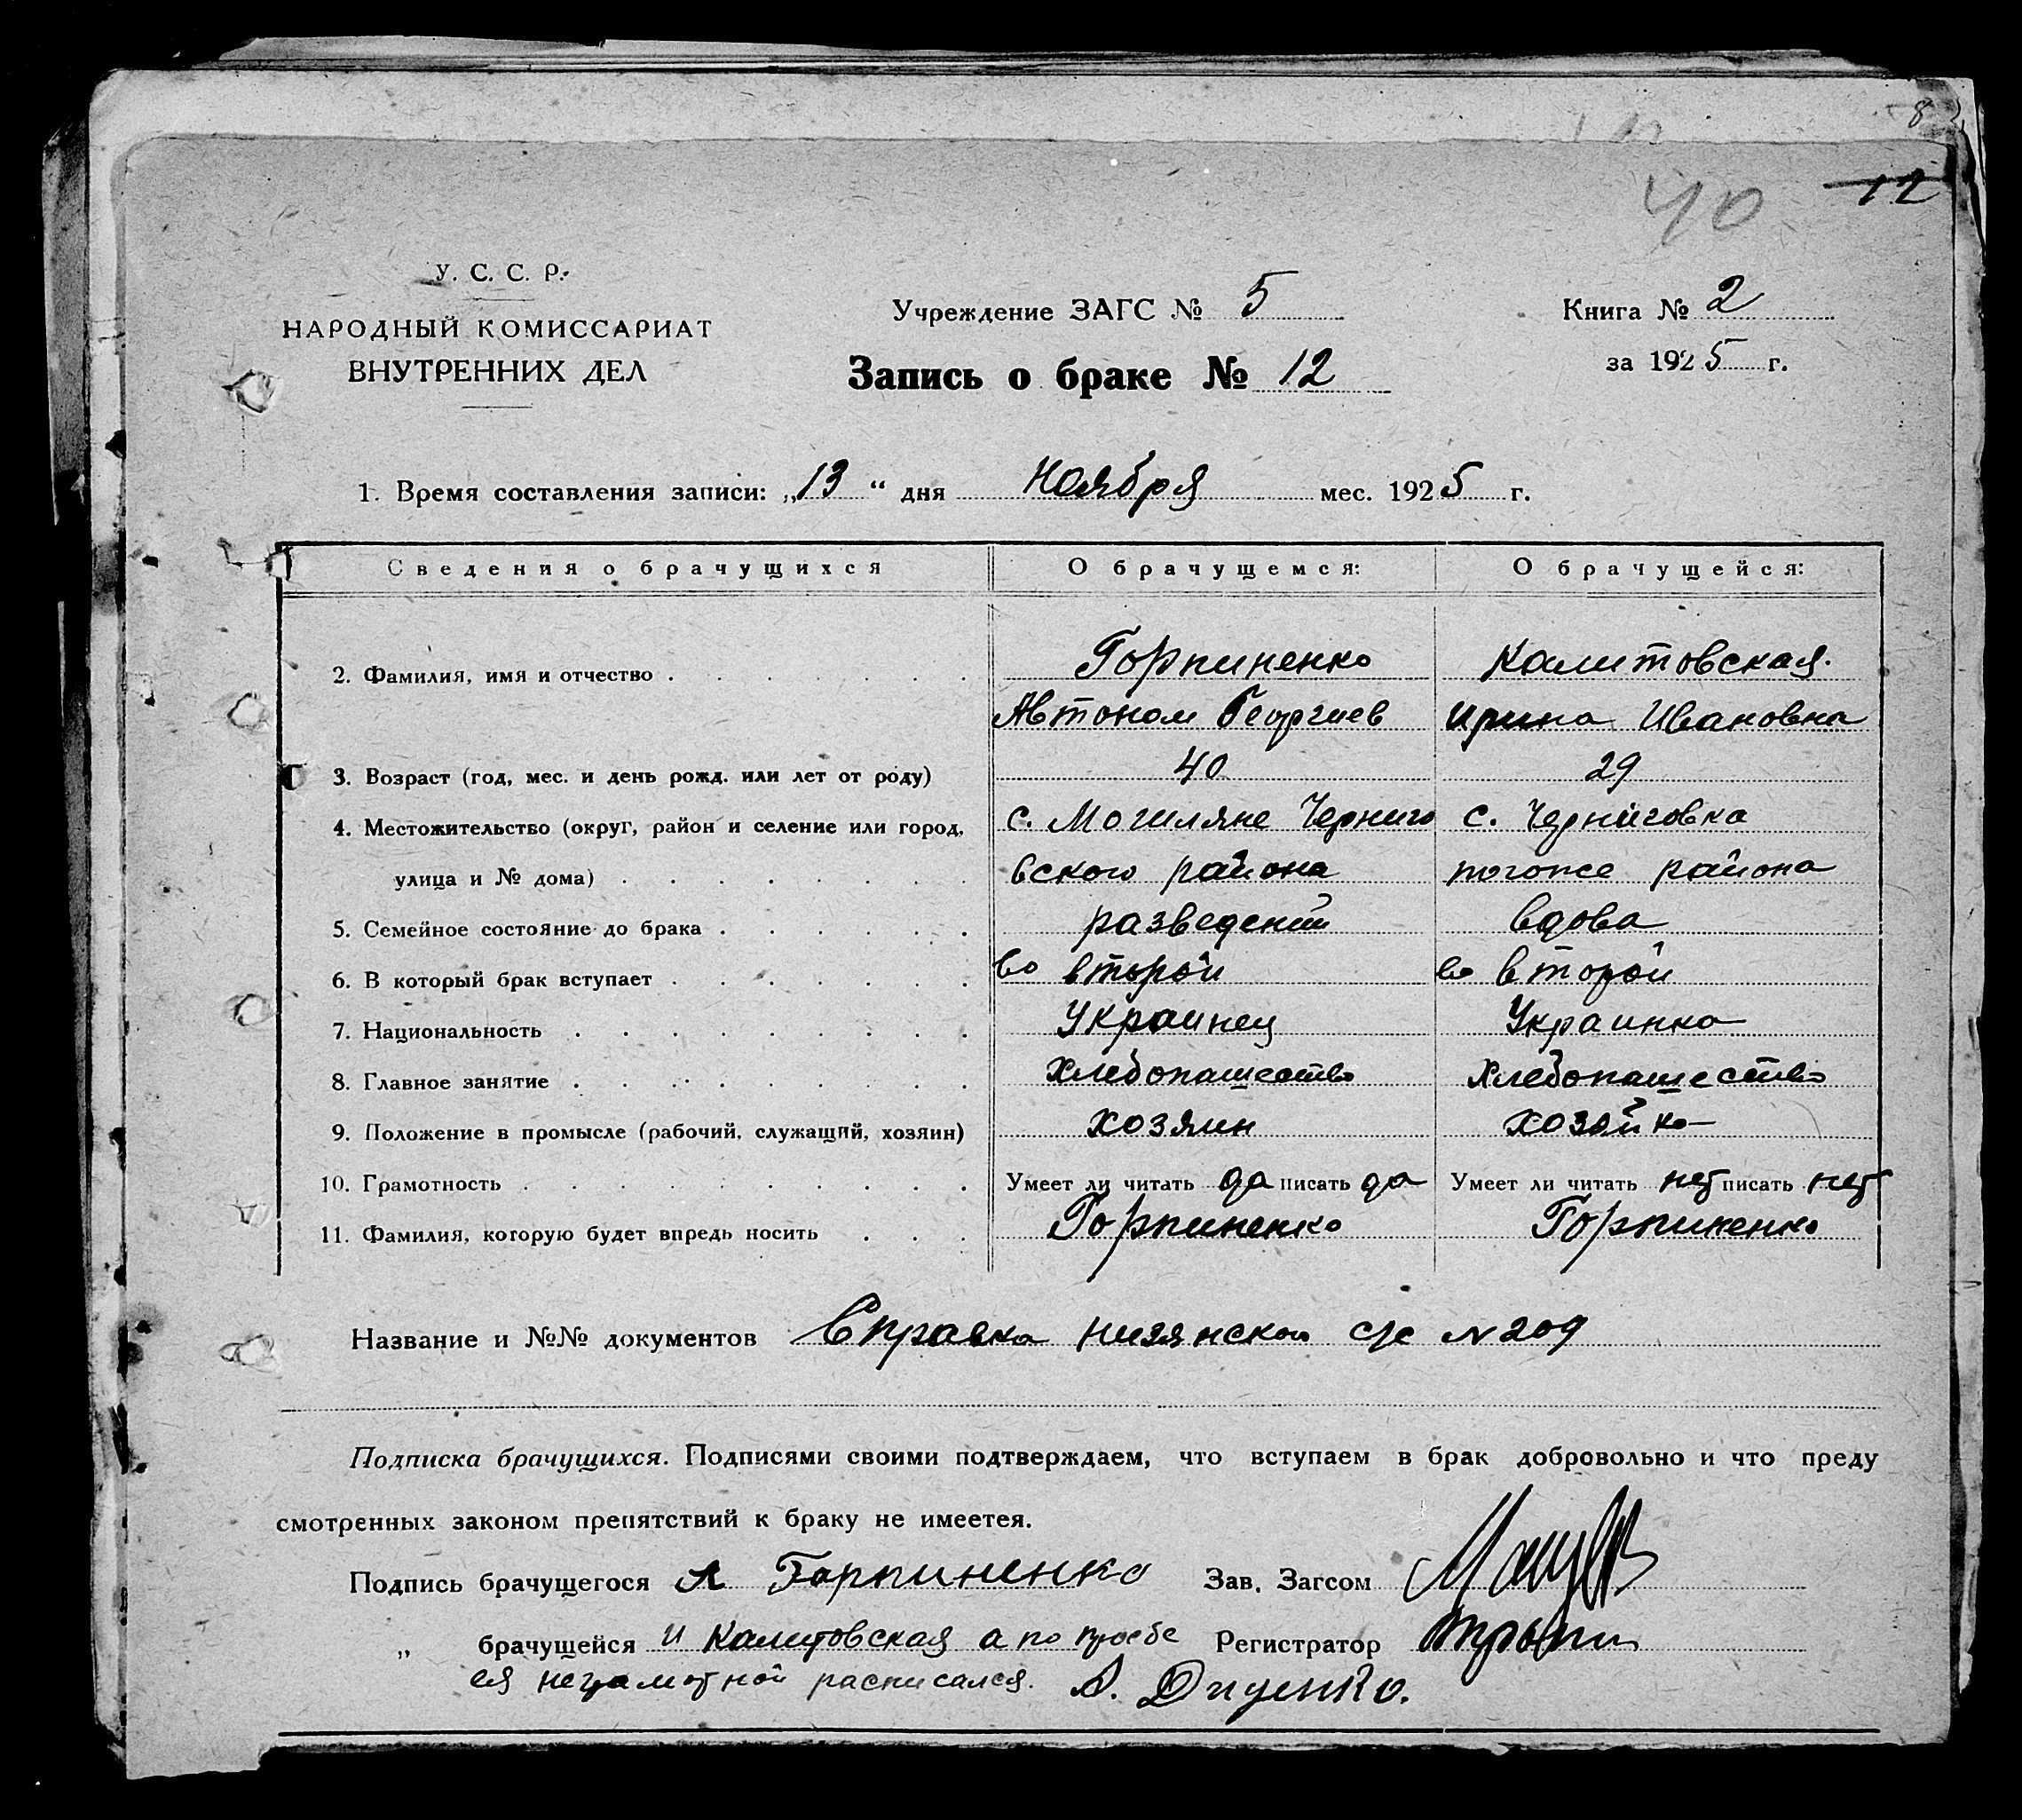 8
40 12
У. С. С. Р.
НАРОДНЫЙ КОМИССАРИАТ
ВНУТРЕННИХ ДЕЛ
Учреждение ЗАГС № 5
Книга № 2
за 1925 г.
Запись о браке № 12
1. Время составления записи: „13“ дня Ноября мес. 1925 г.
Сведения о брачущихся О брачущемся: О брачущейся:
2. Фамилия, имя и отчество Горпиненко Калитовская.
Автоном Георгиев Ирина Ивановна
3. Возраст (год, мес. и день рожд. или лет от роду) 40 29
4. Местожительство (округ, район и селение или город, с. Могиляне Черниго с. Черниговка
улица и № дома) вского района тогоже района
5. Семейное состояние до брака разведений вдова
6. В который брак вступает во второй во второй
7. Национальность Украинец Украинка
8. Главное занятие Хлебопашество Хлебопашество
9. Положение в промысле (рабочий, служащий, хозяин) хозяин хозяйка
10. Грамотность Умеет ли читать да писать да Умеет ли читать нет писать нет
11. Фамилия, которую будет впредь носить Горпиненко Горпиненко
Название и №№ документов Справка низянской с/с № 209
Подписка брачущихся. Подписями своими подтверждаем, что вступаем в брак добровольно и что преду
смотренных законом препятствий к браку не имеетея.
Подпись брачущегося А Горпиненко Зав. Загсом
„ брачущейся И Калитовская а по просбе Регистратор
ея неграмотной расписался. А. Диценко.